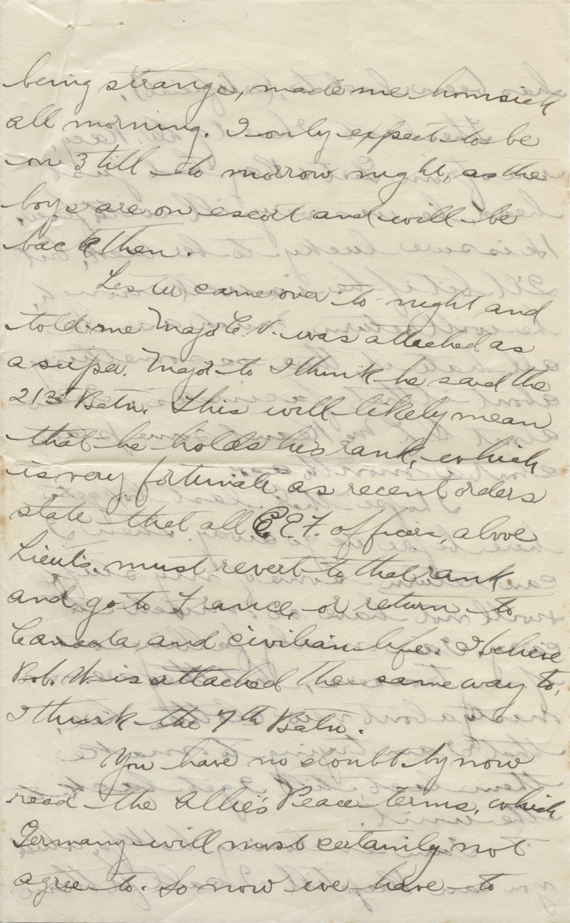 being strange, made me homsick
all morning. I only expect to be
on 3 till to morrow night, as the
boys are on escort and will be
back then.
Les W. came over to night and
told me Majo C. V. was attached as
a super. Major to I think he said the
213 Batn. This will likely mean
that he holds his rank, which
is very fortunate as recent orders
state that all C E. F. officers, above
Lieuts. must revert to that rank
and go to France, or return to
Canada and civilian life. I beleive
Bob W. is attached the same way to,
I think the 9th Batn.
You have no doubt by now
read the Allie's Peace terms, which
Germany will most certainly not
agree to. So now we have to